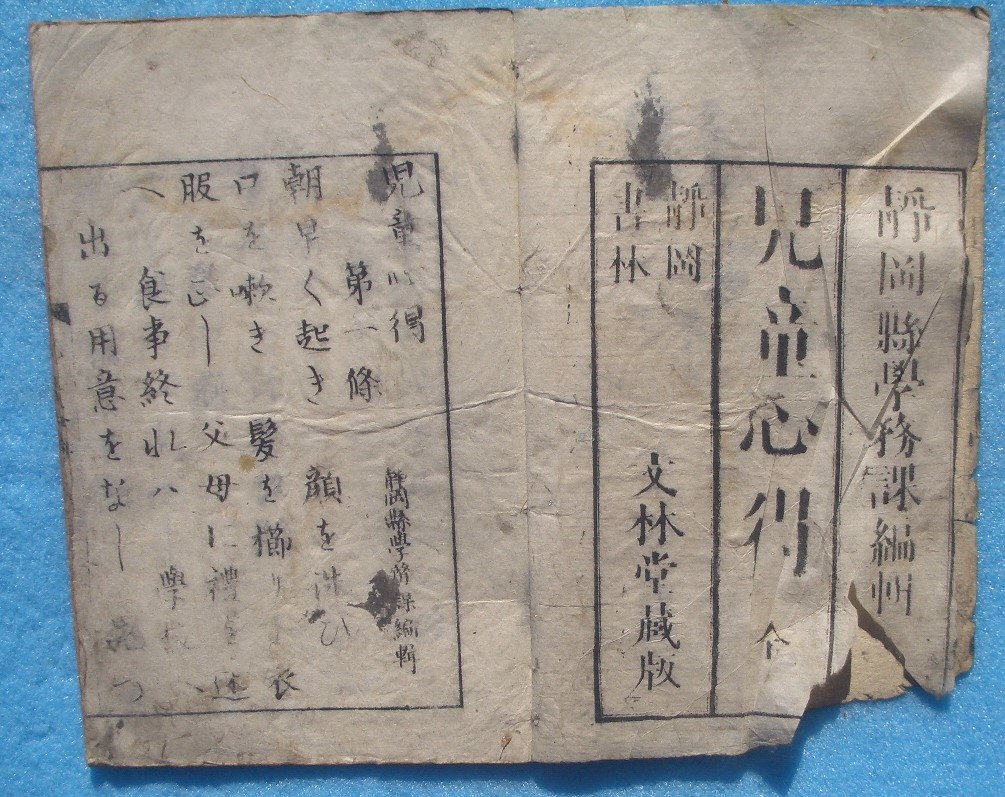 靜岡縣學務課編輯
兒童心得 全
靜岡
書林
文林堂藏版
兒童心得
靜岡縣學務課編輯
第一條
朝早く起き 顔を洗ひ
口を嗽き 髪を櫛り 衣
服を正し 父母に禮を述
へ 食事終れハ 學校へ
出る用意をなし 先つ